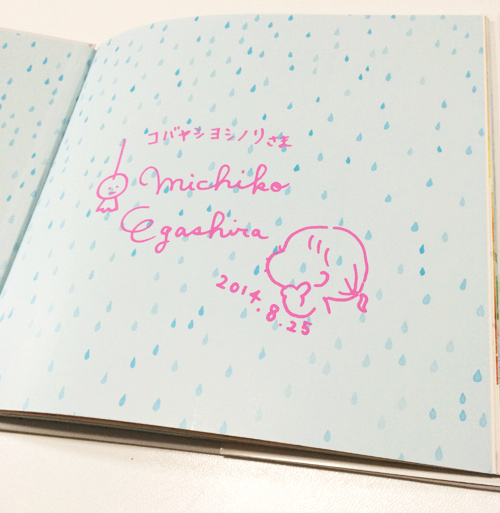 コバヤシヨシノリさま
Michiko
Egashira
2014.8.25